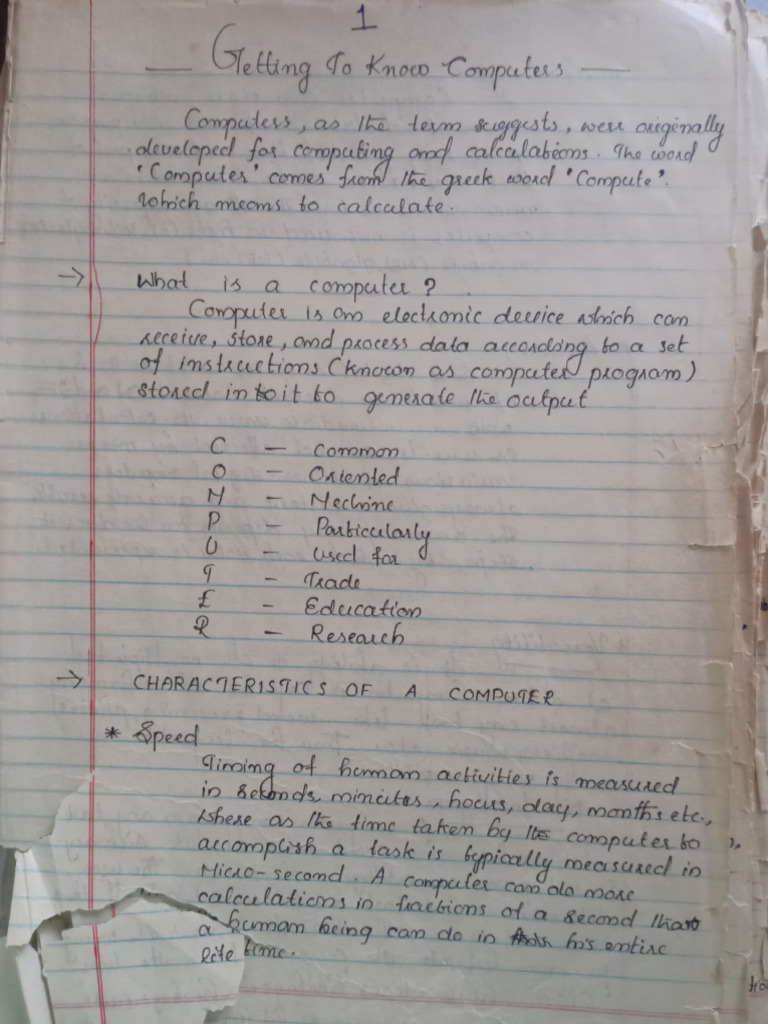 1
Getting To Know Computers
Computers, as the term suggests, were originally
developed for computing and calculations. The word
'Computer' comes from the greek word 'Compute'.
Which means to calculate.
→ What is a computer ?
Computer is an electronic device which can
receive, store, and process data according to a set
of instructions (known as computer program)
stored in to it to generate the output
C — Common
O — Oriented
M — Mechine
P — Particularly
U — Used for
T — Trade
E — Education
R — Research
→ CHARACTERISTICS OF A COMPUTER
* Speed
Timing of human activities is measured
in seconds, minutes, hours, day, months etc.,
where as the time taken by the computer to
accomplish a task is typically measured in
Micro-second. A computer can do more
calculations in fractions of a second than
a human being can do in his entire
life time.